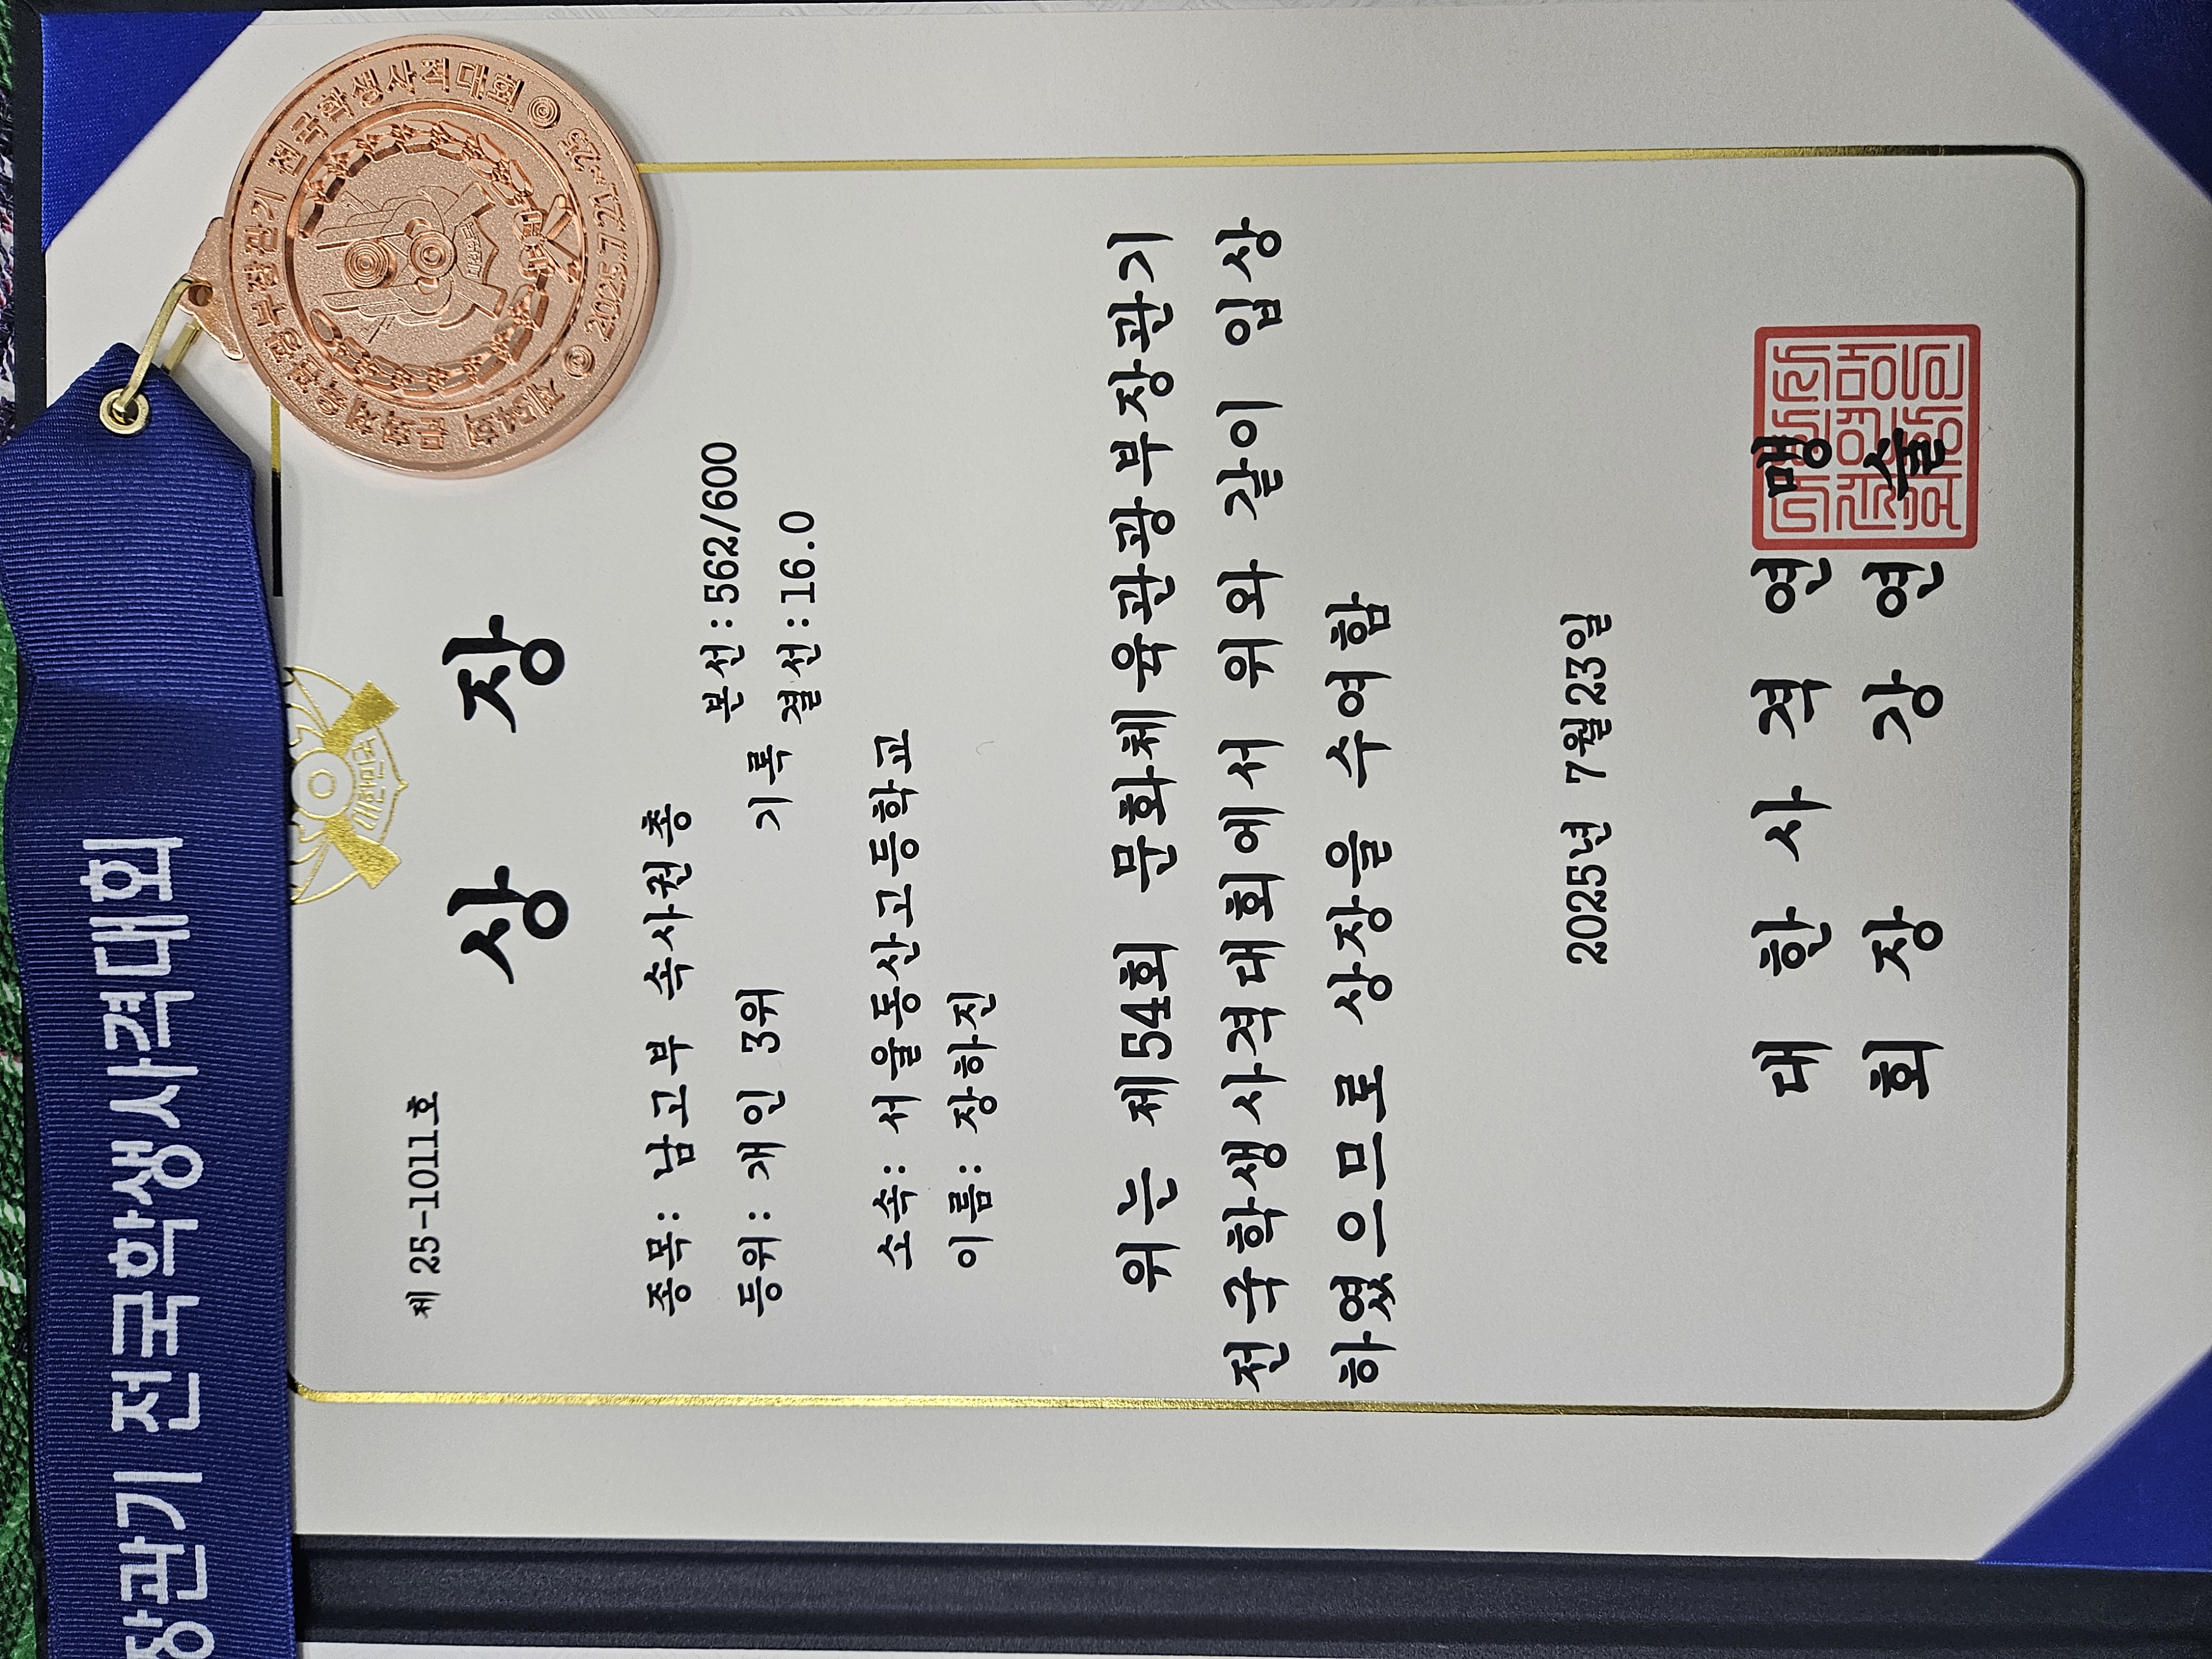 장관기 전국학생사격대회
제54회 문화체육관광부장관기 전국학생사격대회
2025.7.17.~23.
대한민국
제 25-1011호
상 장
종목: 남고부 속사권총
등위: 개인 3위 기록 본선:562/600
결선:16.0
소속: 서울동산고등학교
이름: 장하진
위는 제54회 문화체육관광부장관기
전국학생사격대회에서 위와 같이 입상
하였으므로 상장을 수여함
2025년 7월23일
대 한 사 격 연 맹
회 장 강 연 술